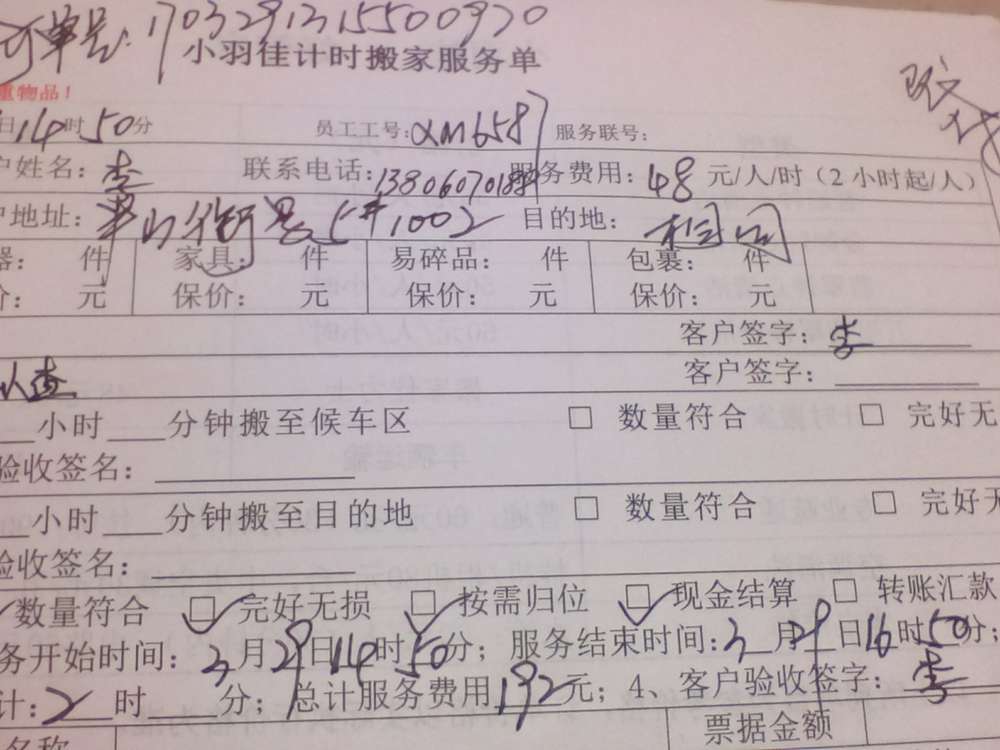 订单号:1703291315500970
小羽佳计时搬家服务单
重物品!
日14时50分 员工工号:XM658 服务联号:
户姓名:李 联系电话:1380607018 服务费用:48元/人/时(2小时起/人)
户地址: 目的地:相同
器: 件 家具: 件 易碎品: 件 包裹: 件
价: 元 保价: 元 保价: 元 保价: 元
客户签字:李
客户签字:
小时 分钟搬至候车区 □ 数量符合 □ 完好无
验收签名:
小时 分钟搬至目的地 □ 数量符合 □ 完好无
验收签名:
数量符合 ☑ 完好无损 ☑ 按需归位 ☑ 现金结算 □ 转账汇款
务开始时间:3月29日14时50分;服务结束时间:3月29日16时50分;
计:2时 分;总计服务费用192元;4、客户验收签字:李
名称 票据金额